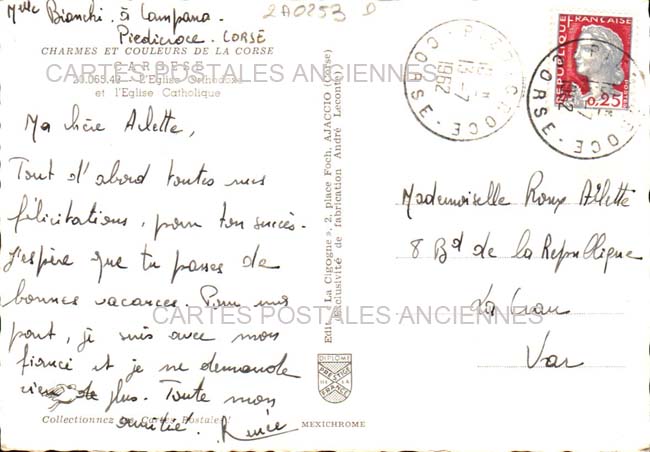 Melle Bianchi. à Campana.
Piedicroce. CORSE
2A0253 D
CHARMES ET COULEURS DE LA CORSE
CARGESE
20.065.43 - L'Eglise Orthodoxe
et l'Eglise Catholique
CARTES POSTALES ANCIENNES
Ma chère Arlette,
Tout d'abord toutes mes
félicitations, pour ton succès.
J'espère que tu passes de
bonnes vacances. Pour ma
part, je suis avec mon
fiancé et je ne demande
rien de plus. Toute mon
amitié. Renée
Collectionnez les Cartes Postales!
Edit. « La Cigogne », 2, place Foch, AJACCIO (Corse)
Exclusivité de fabrication André Leconte
DIPLOME
PRESTIGE
DE LA
FRANCE
MEXICHROME
PIEDICROCE - CORSE
13-7
1962
REPUBLIQUE FRANÇAISE
0,25
PIEDICROCE - CORSE
1962
Mademoiselle Roux Arlette
8 Bd de la République
La Crau
Var
CARTES POSTALES ANCIENNES